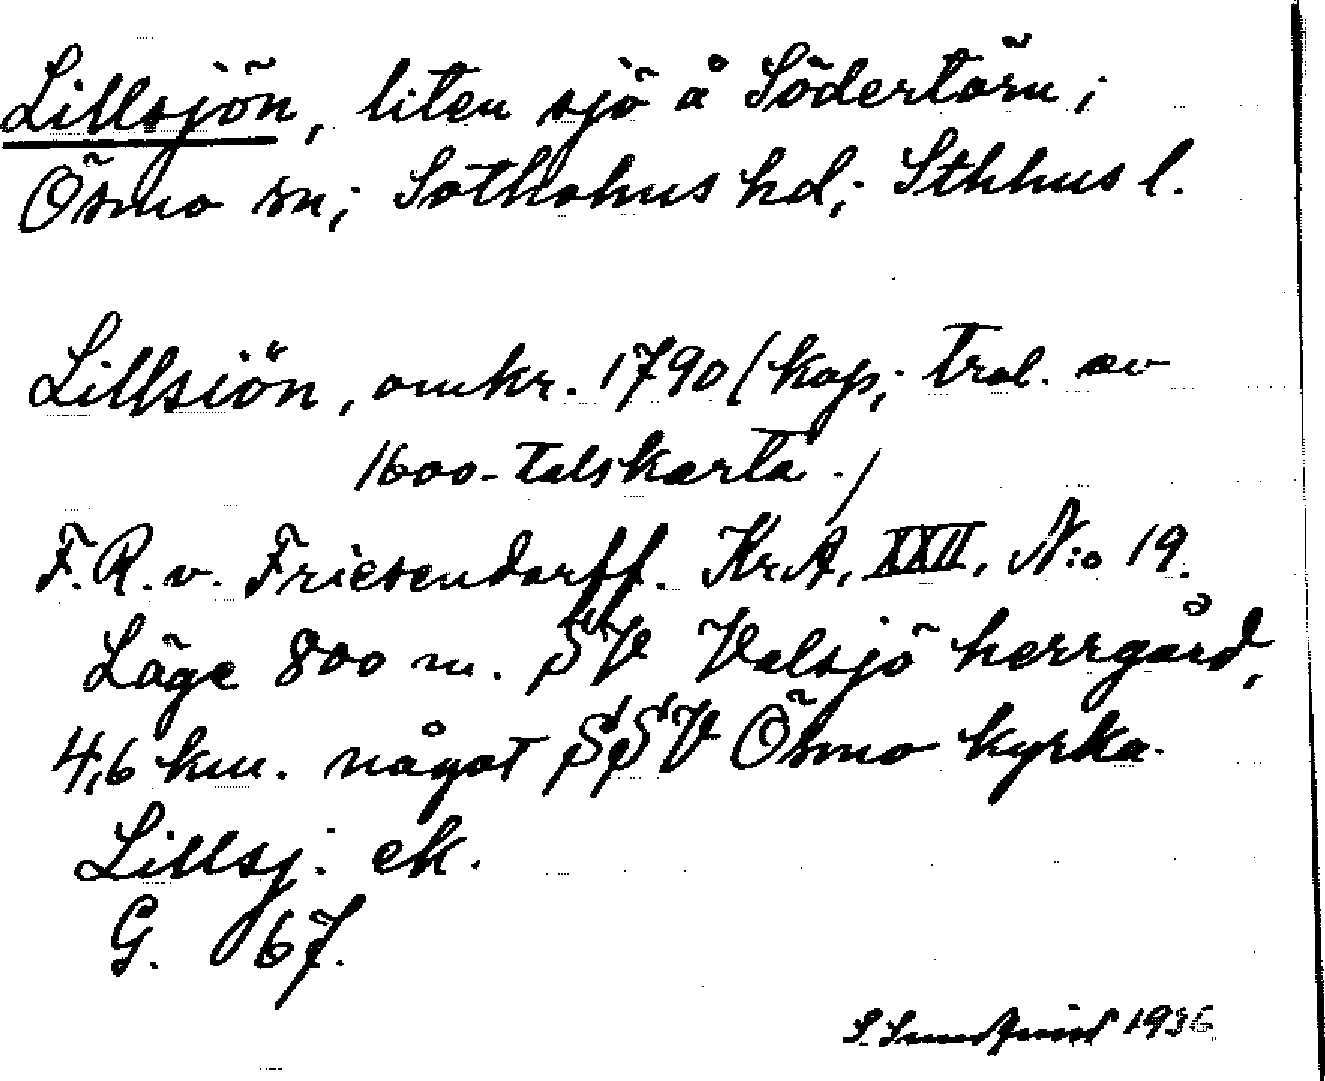 Lillsjön, liten sjö å Södertörn;
Ösmo sn; Sotholms hd; Sthlms l.
Lillsiön, omkr. 1790 (kop; trol. av
1600-talskarta.)
F.R. v. Friesendorff. Kr.A, XXII, N:o 19.
Läge 800 m. SV Valsjö herrgård,
4,6 km. något SSV Ösmo kyrka.
Lillsj. ek.
G. 67.
S. Sundqvist 1936